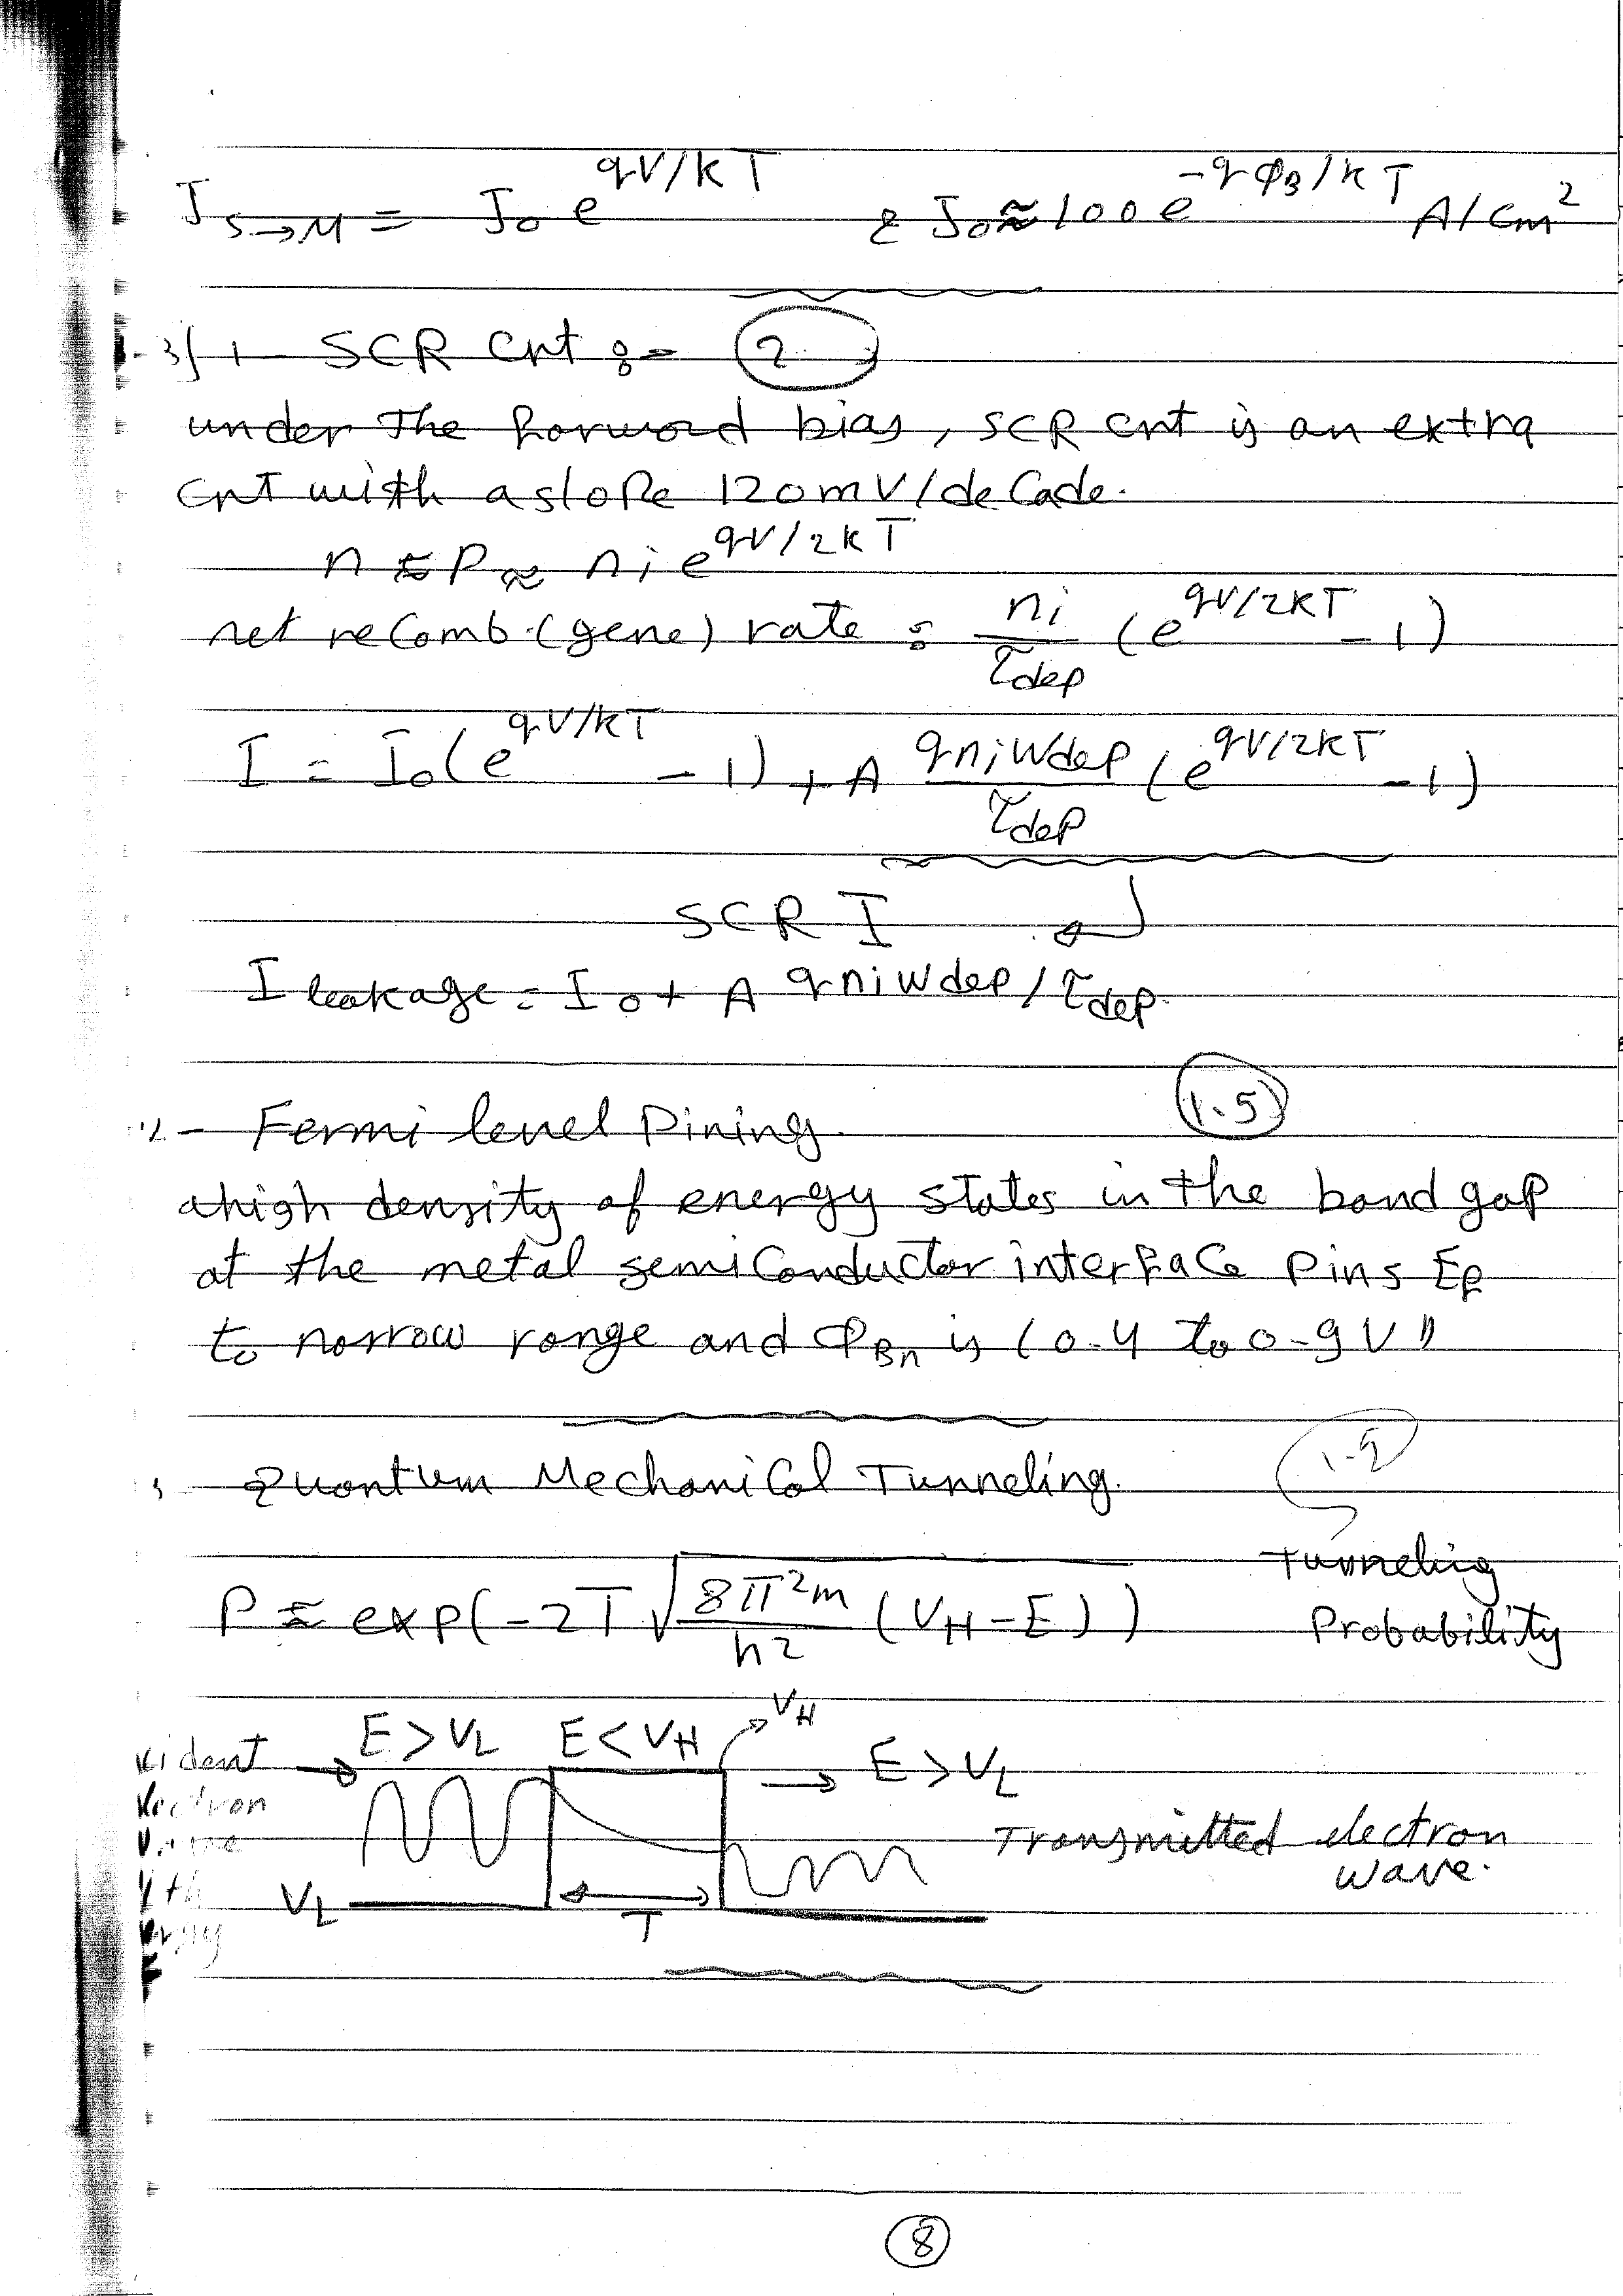 J_{S→M} = J_0 e^{qV/kT} & J_0 ≈ 100 e^{-qφ_B/kT} A/cm^2
3/1 - SCR Cnt :- (2)
under the forword bias, SCR cnt is an extra
Cnt with a slope 120mV/deCade.
n ≈ P ≈ ni e^{qV/2kT}
net reComb.(gene) rate = \frac{ni}{τ_{dep}} (e^{qV/2kT} - 1)
I = I_0 (e^{qV/kT} - 1) + A \frac{q ni Wdep}{τ_{dep}} (e^{qV/2kT} - 1)
SCR I
I leakage = I_0 + A q ni Wdep / τ_{dep}.
2 - Fermi level Pining. (1.5)
a high density of energy states in the band gap
at the metal semiConductor interface Pins E_F
to norrow range and φ_{Bn} is (0.4 to 0.9 V)
- Quantum MechaniCal Tunneling.
Tunneling
P ≈ exp(-2T \sqrt{\frac{8π^2m}{h^2} (V_H - E)}) Probability
V_H
E > V_L E < V_H → E > V_L
Transmitted electron
wave.
V_L T
(8)